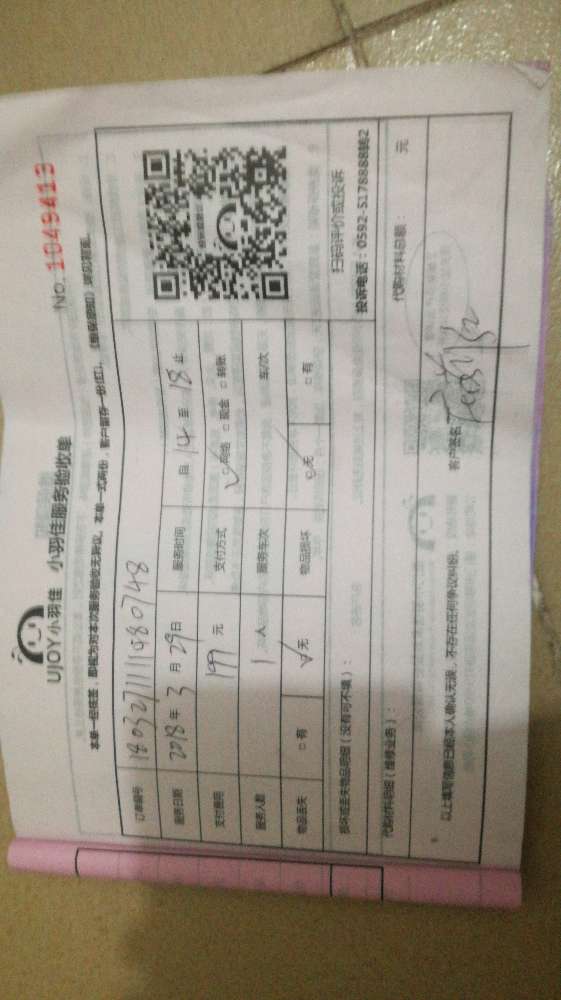 UJOY小羽佳 小羽佳服务验收单
No. 1049413
本单一经核签，即视为对本次服务验收无异议。本单一式两份，客户留存一份(红)。
订单编号 180327111980748
服务日期 2018年3月29日 服务时间 自14至18止
支付费用 199元 支付方式 ☑网络 □现金 □转账
服务人数 1人 服务车次 车/次
物品丢失 □有 ☑无 物品损坏 ☑无 □有
损坏或丢失物品明细（没有可不填）：
扫码评价或投诉
投诉电话：0592-5178888转2
代购材料明细（维修业务）：
代购材料总额： 元
以上填写信息已经本人确认无误，不存在任何争议纠纷。
客户签名